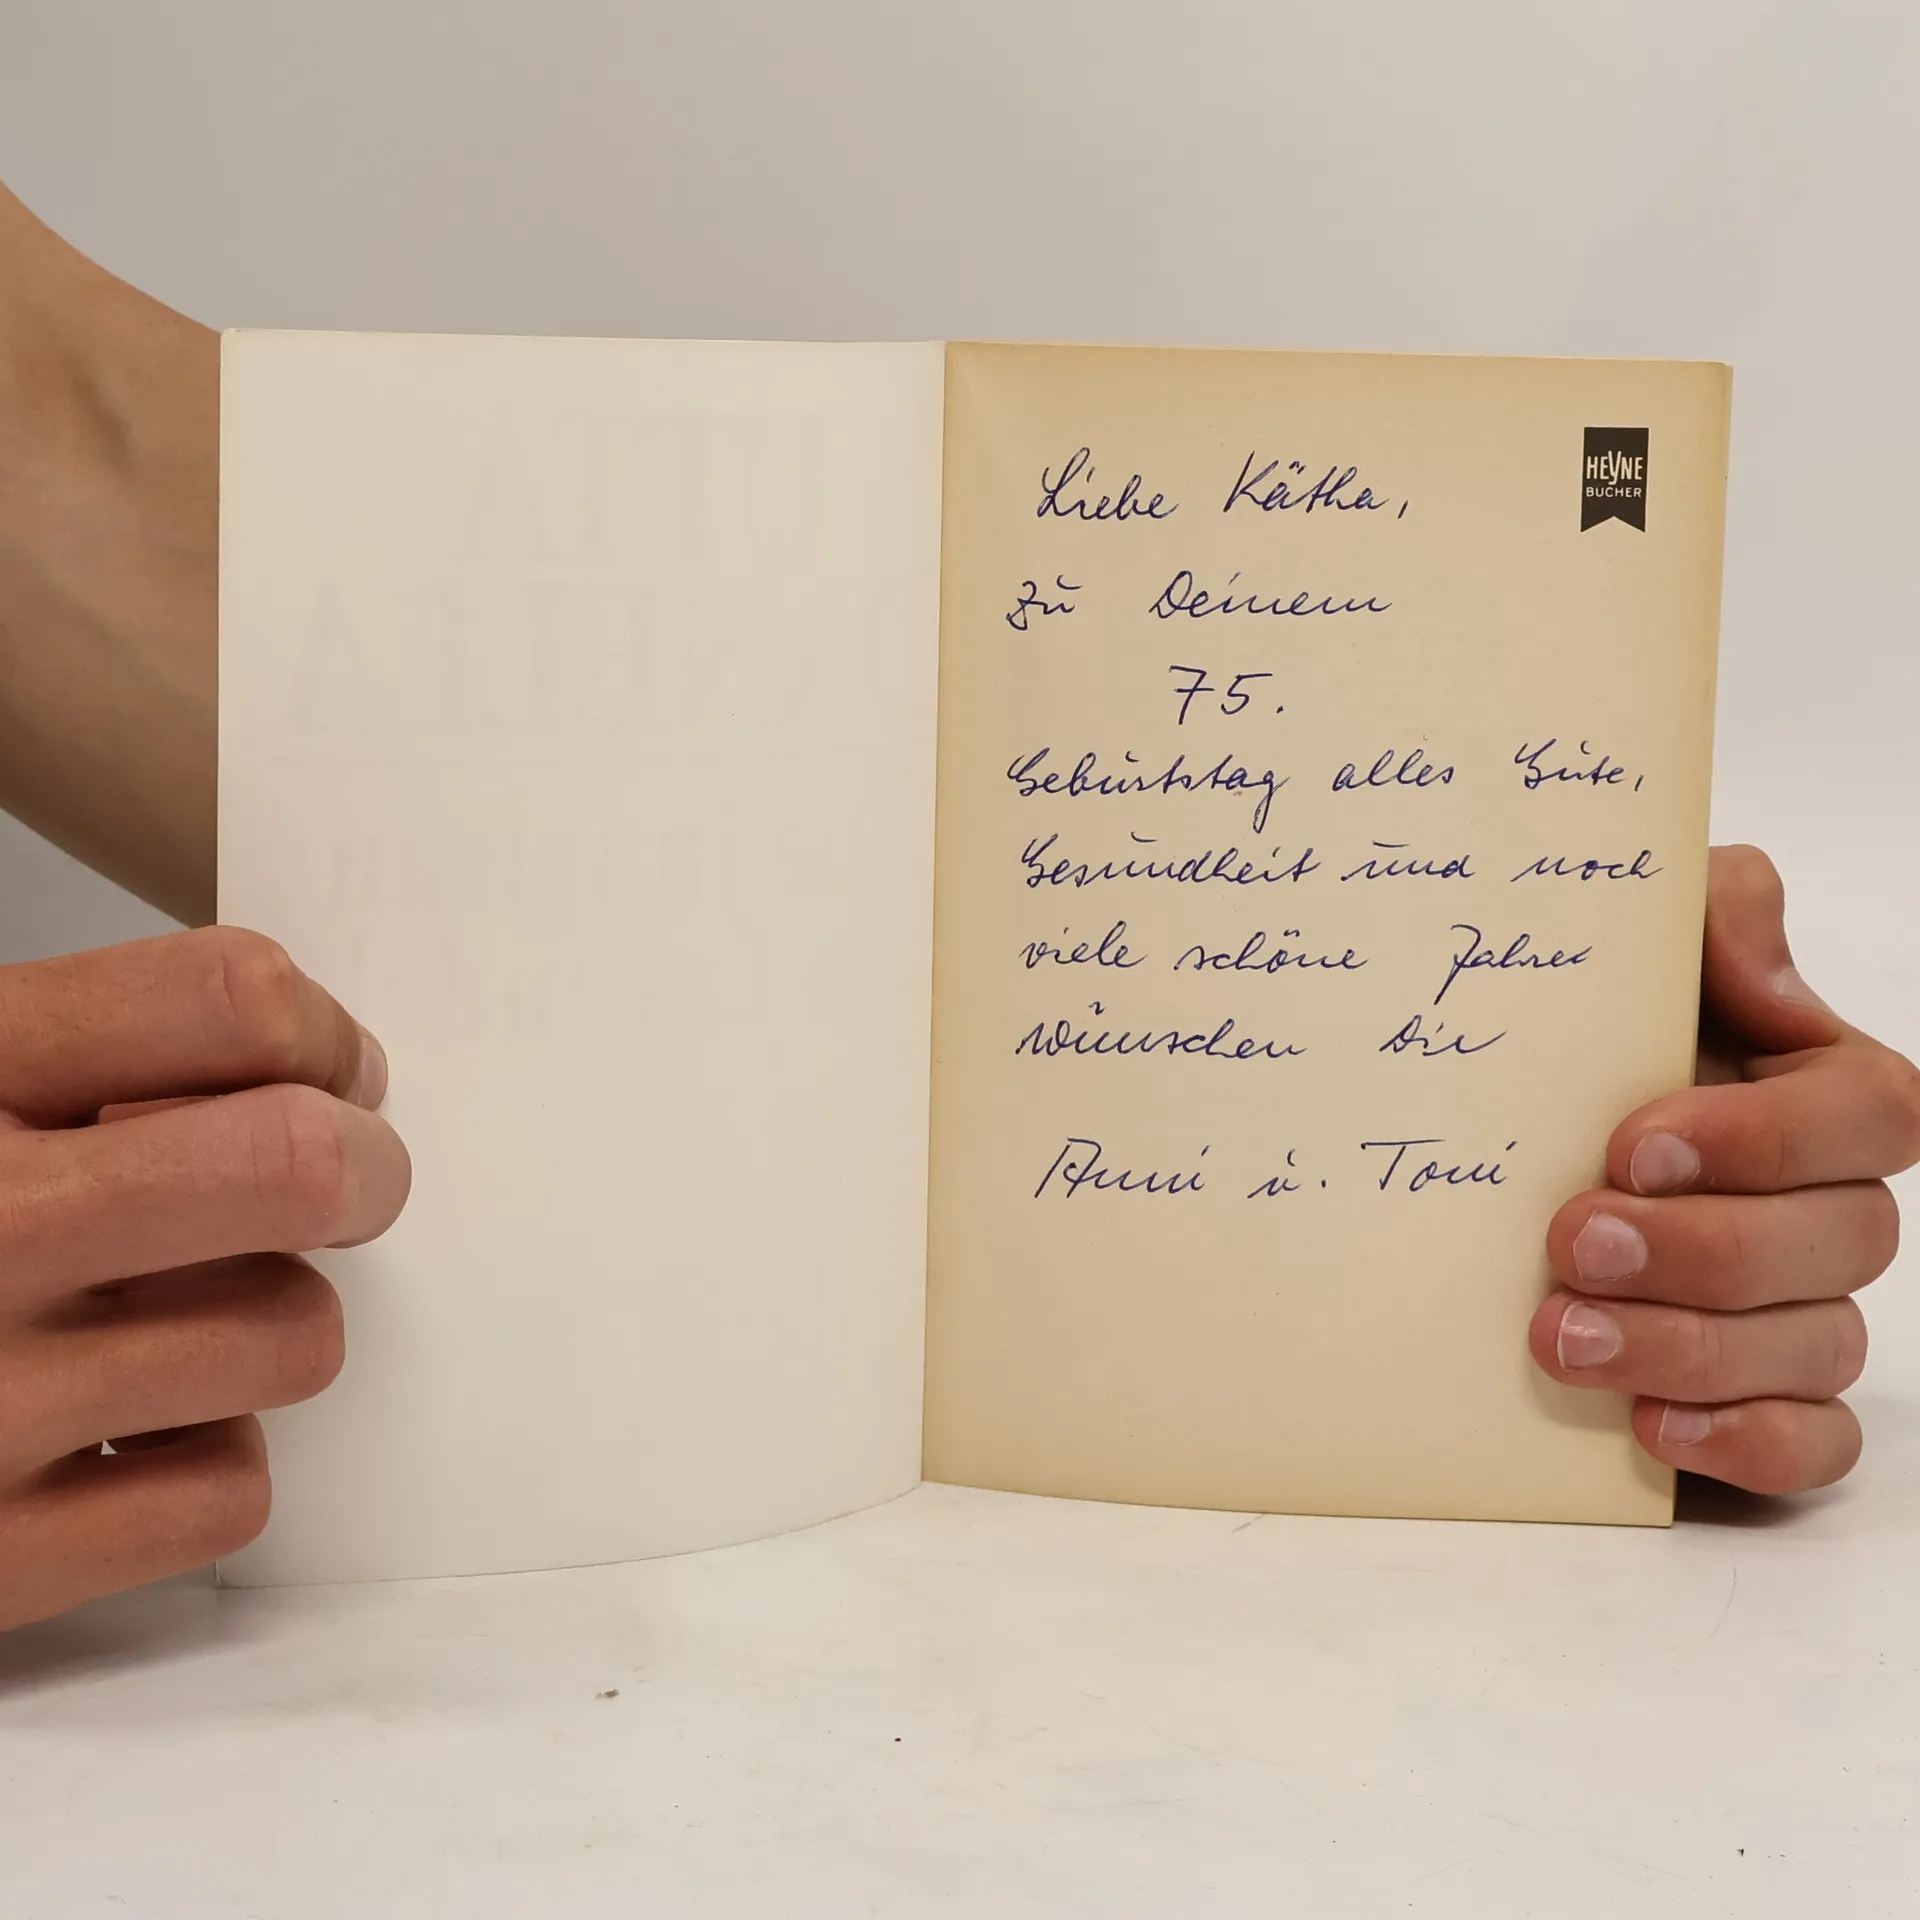 HEYNE
BÜCHER
Liebe Kätha,
zu Deinem
75.
Geburtstag alles Gute,
Gesundheit und noch
viele schöne Jahre
wünschen Dir
Anni u. Toni